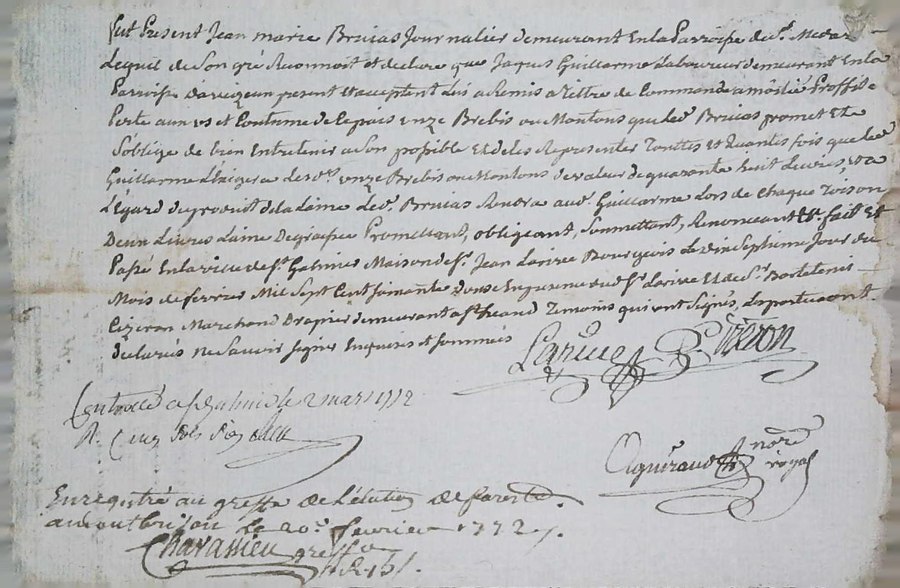 fut Present Jean marie Brujas Journalier demeurant En la Parroisse de St. Medar
Lequel de Son gré Reconnoit et declare que Jaques Guillarme Laboureur demeurant En la
Parroisse D'aveizieux present et acceptant Luy a Remis a Tittre de Commande a moitié Proffit &
Perte aux us et Coutume de Ce pais onze Brebis ou Moutons que led. Brujas promet Et
S'oblige de bien Entretenir a Son possible Et de les Representer Touttes et Quantes fois que led.
Guillarme L'Exigera les dts. onze Brebis ou Moutons de valeur de quarante huit Livres, Et a
L'Egard du produit de la Laine led. Brujas Rendra aud. Guillarme Lors de Chaque Toison
Deux Livres Laine De graisse Promettant, obligeant, Soumettant, Renonceant &c. fait Et
Passé En la ville de St. Galmier Maison de Sr. Jean Larive Bourgeois Le dix Septieme Jour du
Mois de fevrier Mil Sept Cent Soixante Douze En presence dud. Sr. Larive Et de Sr.
Marchand Drapier demeurant a St. Temoins qui ont Signés, Les parties ont
declarés ne Savoir signer Enquises et sommées
Larive
Controllé a St. Galmier le 2 mars 1772
R.
nore.
royal
Enregistré au greffe de L'élection de forest
a montbrison Le 20e. fevrier 1772
Chavassieu greff.